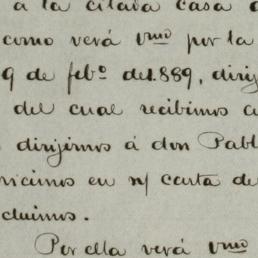 a la citada casa
como verá vmo por la
9 de febo. de 1.889, dirij
del cual recibimos
dirijimos á don Pabl
hicimos en n/ carta de
cluimos.
Por ella verá vmo